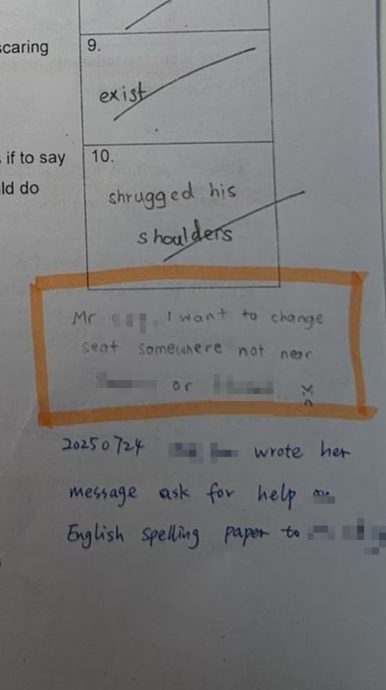 scaring
9.
exist
if to say
ld do
10.
shrugged his
shoulders
Mr I want to change
seat somewhere not near
or
20250724 wrote her
message ask for help on
English spelling paper to